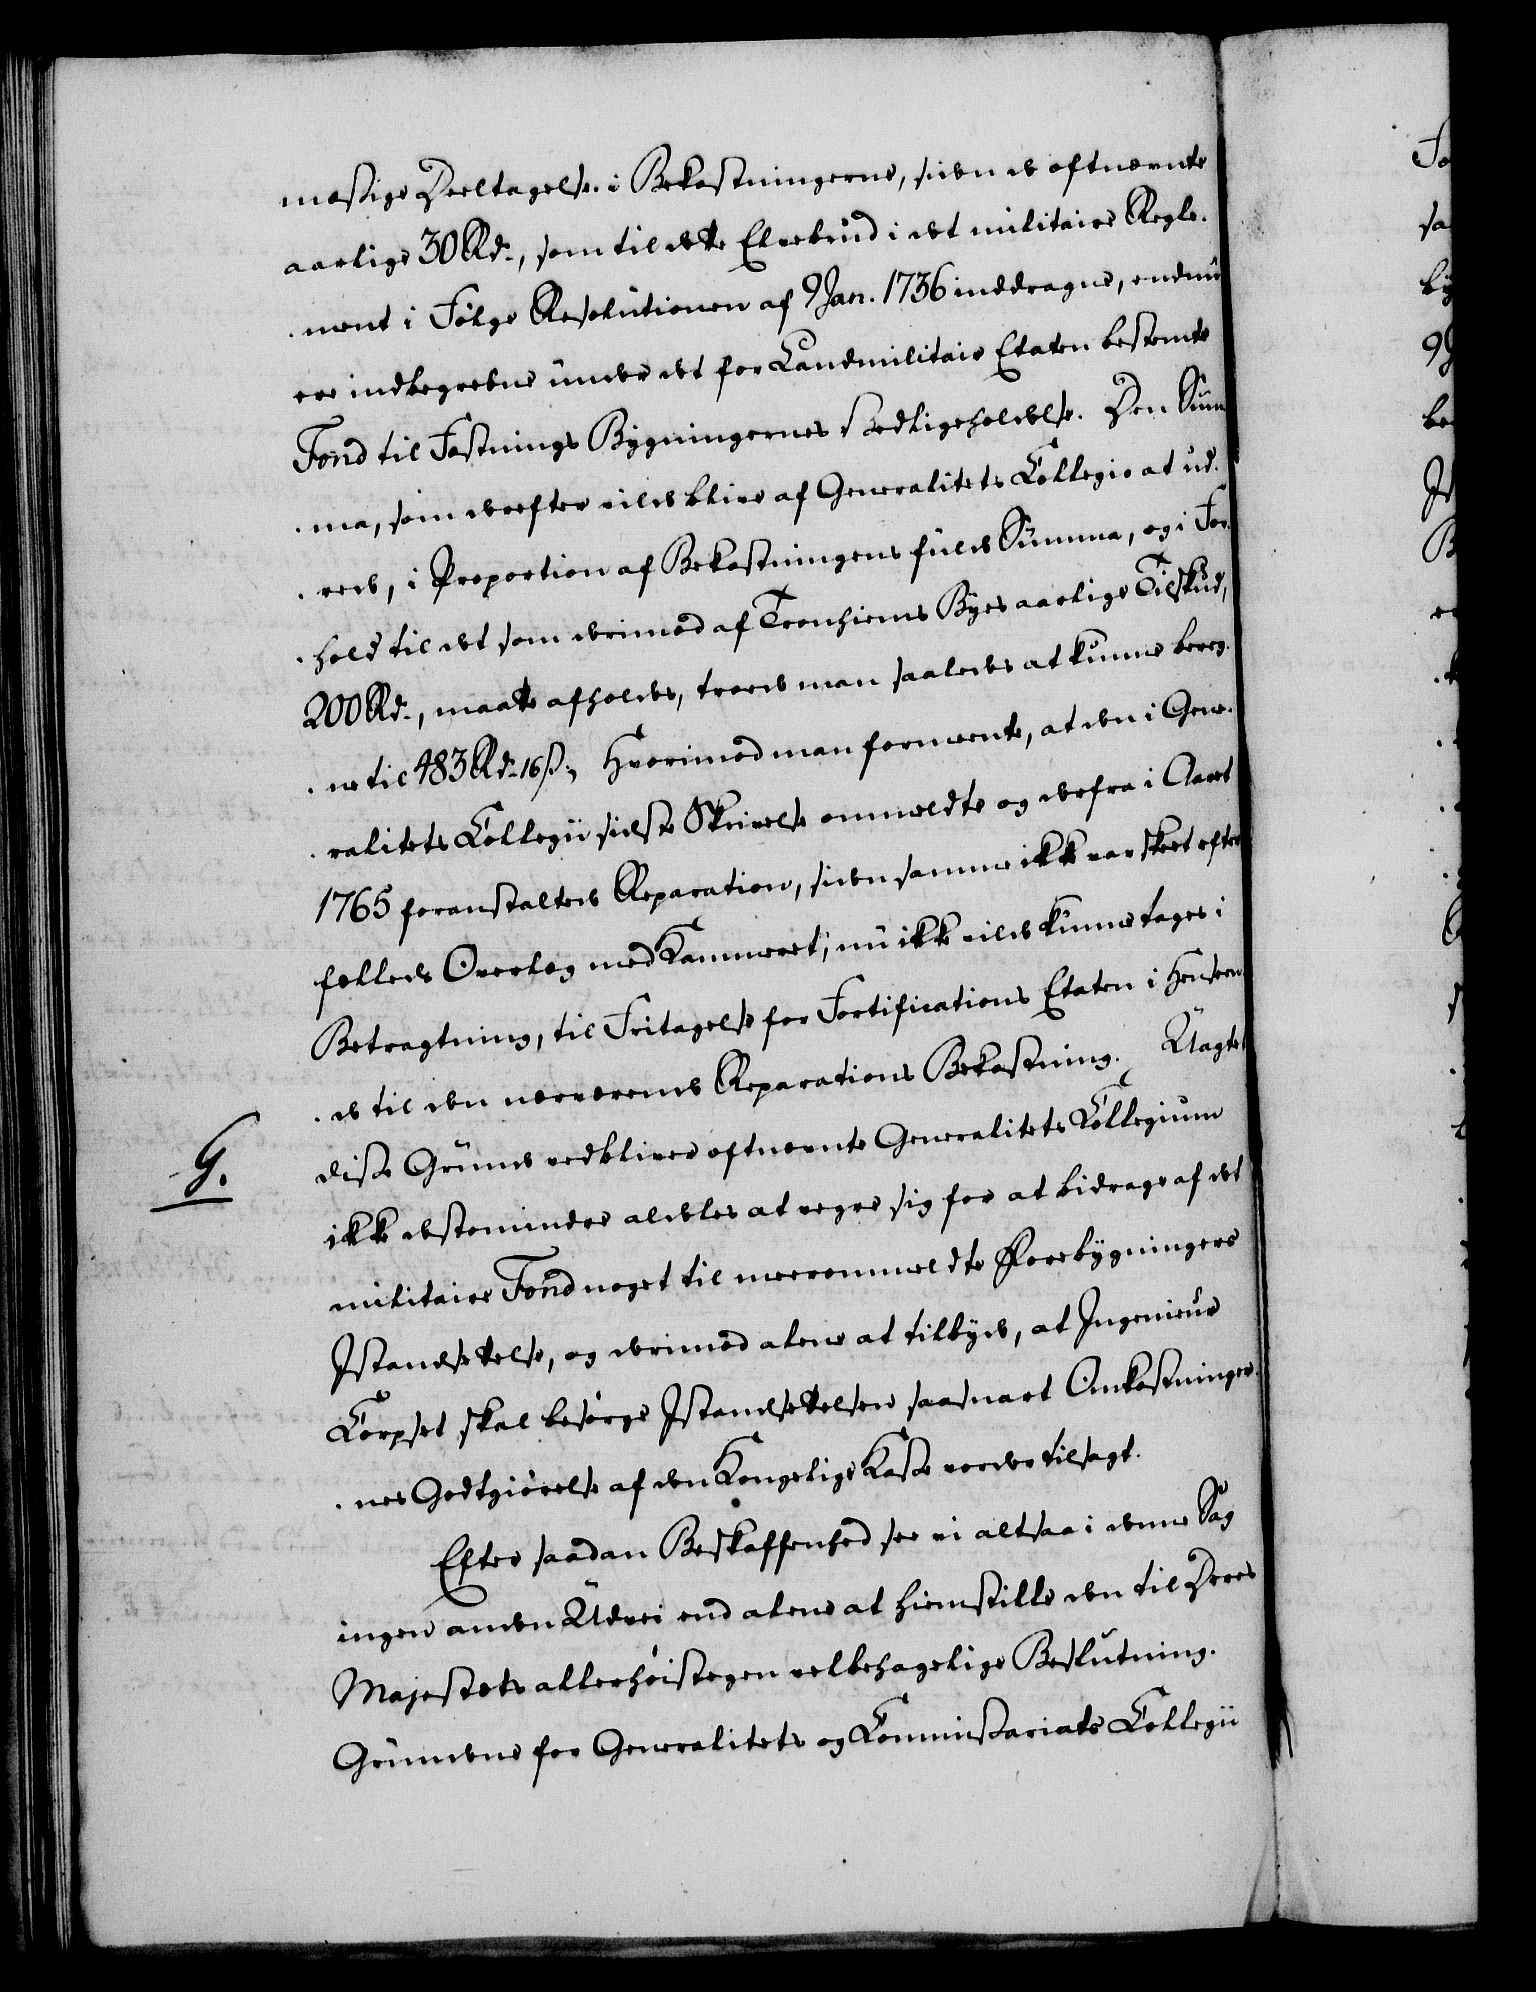 mæssige Deeltagelse i Bekostningerne, siden de oftnævnte
aarlige 30 Rd., som til dette Elvebrud i det militaire Regle-
ment i Følge Resolutionen af 9 Jan. 1736 inddragne, endnu
ere indbegrebne under det for Landmilitair Etaten bestemte
Fond til Fæstnings Bygningernes Vedligeholdelse. Den Sum-
ma, som derefter vilde blive af Generalitets Collegio at ud-
rede, i Proportion af Bekostningens fulde Summa, og i For-
hold til det som derimod af Tronhiems Byes aarlige Tilskud,
200 Rd., maatte afholdes, troede man saaledes at kunne bereg-
ne til 483 Rd. 16 ß; Hvorimod man formeente, at den i Gene-
ralitets Collegii sidste Skrivelse ommeldte og derfra i Aaret
1765 foranstaltede Reparation, siden samme ikke var skeet efter
fælleds Overlæg med Kammeret, nu ikke vilde kunne tages i
Betragtning, til Fritagelse for Fortifications Etaten i Henseen-
de til den nærværende Reparations Bekostning. Uagtet
G. disse Grunde vedbliver oftnævnte Generalitets Collegium
ikke destomindre aldeles at vegre sig for at bidrage af det
militaire Fond noget til meerommeldte Forebygningers
Istandsettelse, og derimod alene at tilbyde, at Ingenieur
Corpset skal besørge Istandsettelsen saasnart Omkostninger-
nes Godtgiørelse af den Kongelige Kasse vorder tilsagt.
Efter saadan Beskaffenhed see vi altsaa i denne Sag
ingen anden Udvei end alene at hiemstille den til Deres
Majestæts allerhøistegen velbehagelige Beslutning.
Grundene for Generalitets og Commissariats Collegii